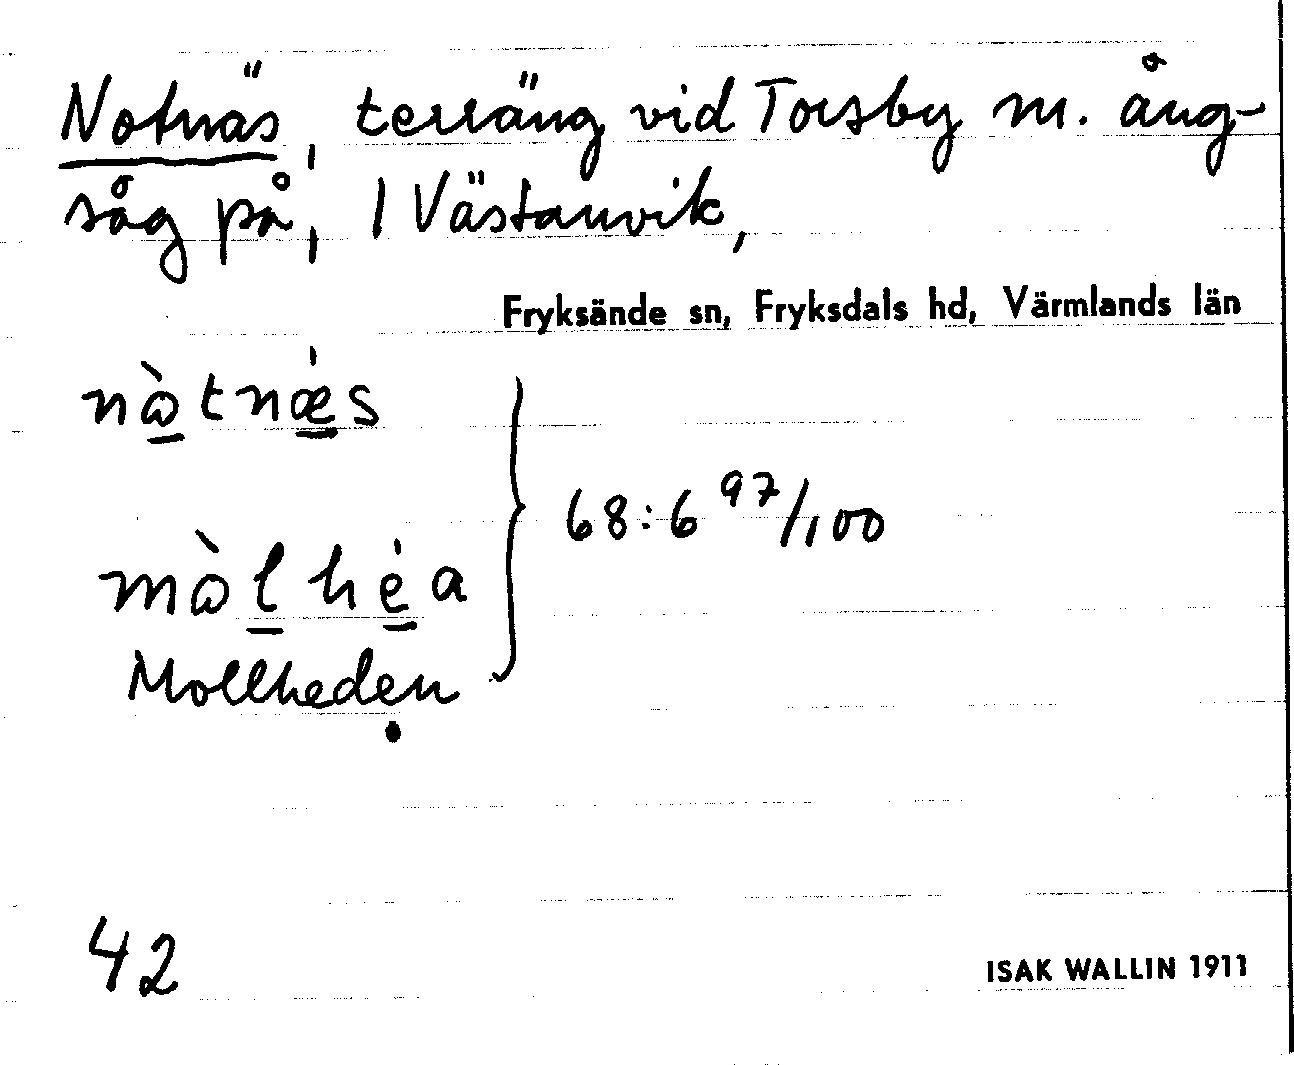 Notnäs, terräng vid Torsby m. ång-
såg på, 1 Västanvik,
Fryksände sn, Fryksdals hd, Värmlands län
nòtnǽs
68:6 97/100
mòlhéa
Mollheden
42
ISAK WALLIN 1911